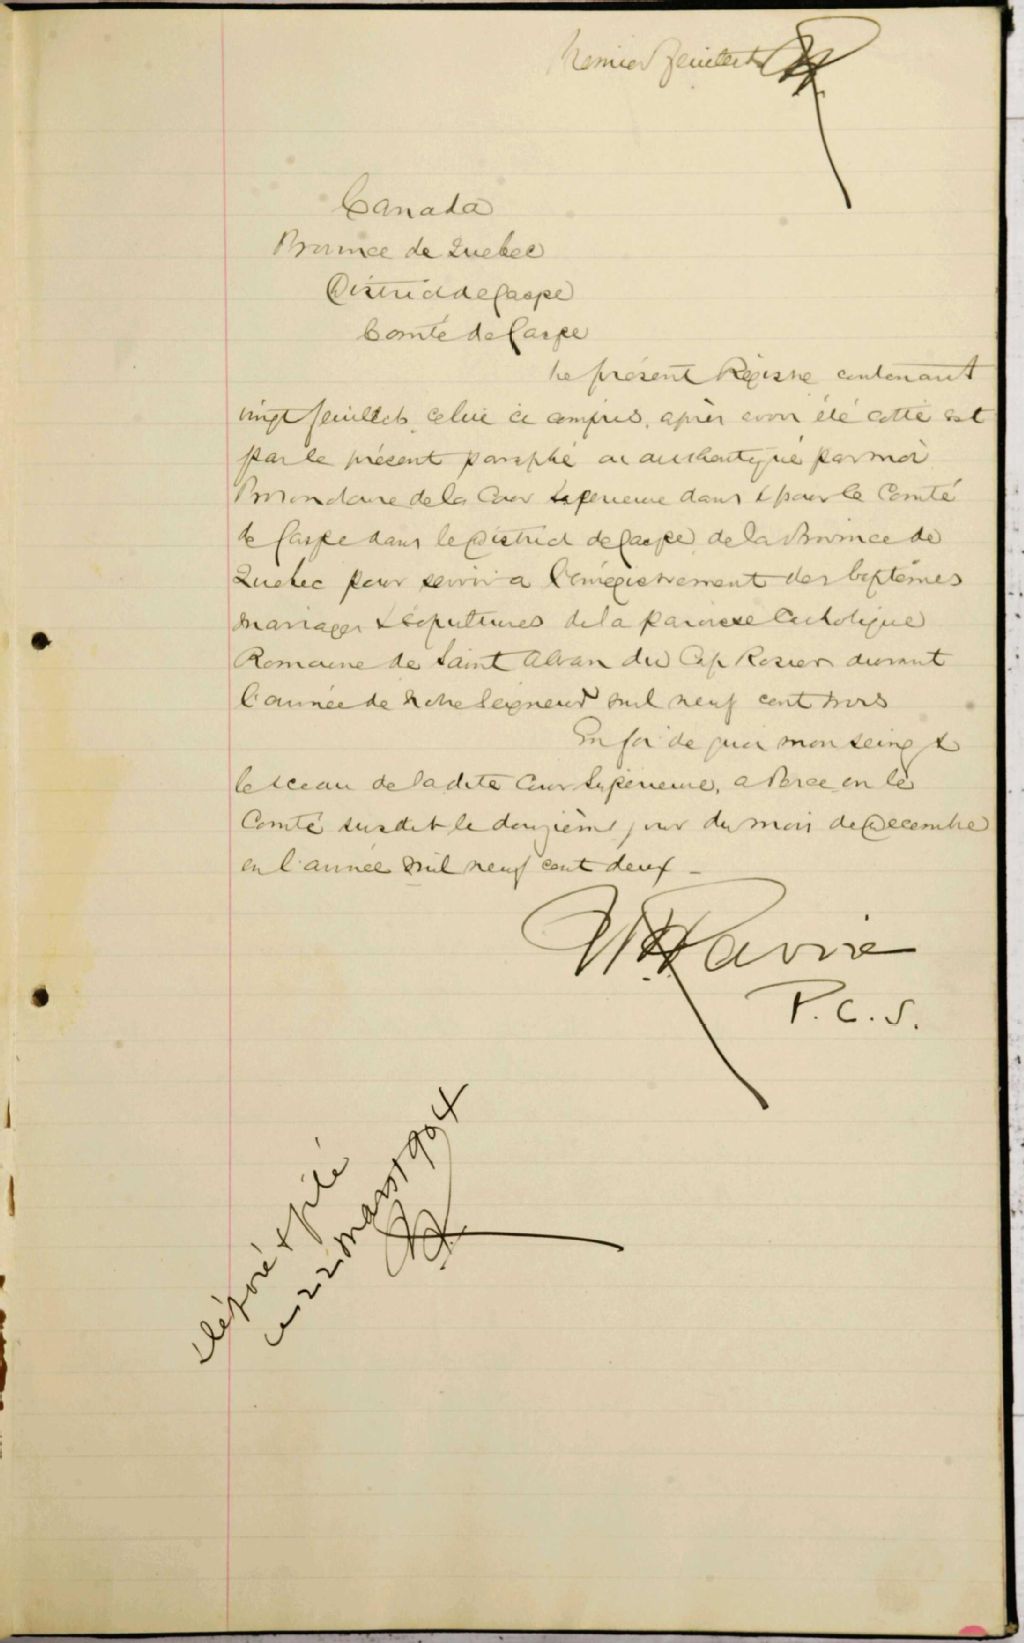 Premier feuillet
Canada
Province de Quebec
District de Gaspe
Comté de Gaspe
Le présent Régistre contenant
vingt feuillets, celui ci compris, après avoir été cotté est
par le présent paraphé et authentiqué par moi
Protonotaire de la Cour Superieure dans & pour le Comté
de Gaspe dans le District de Gaspe, de la Province de
Quebec pour servir a l'enrégistrement des baptêmes
mariages & sépultures de la paroisse Catholique
Romaine de Saint Alban du Cap Rosier durant
l'année de Notre Seigneur mil neuf cent trois
En foi de quoi mon seing &
le sceau de la dite Cour Supérieure, a Percé en le
Comté susdit le douzième jour du mois de Decembre
en l'année mil neuf cent deux -
Lavoie
P.C.S.
Déposé & filé
ce 22 mars 1904